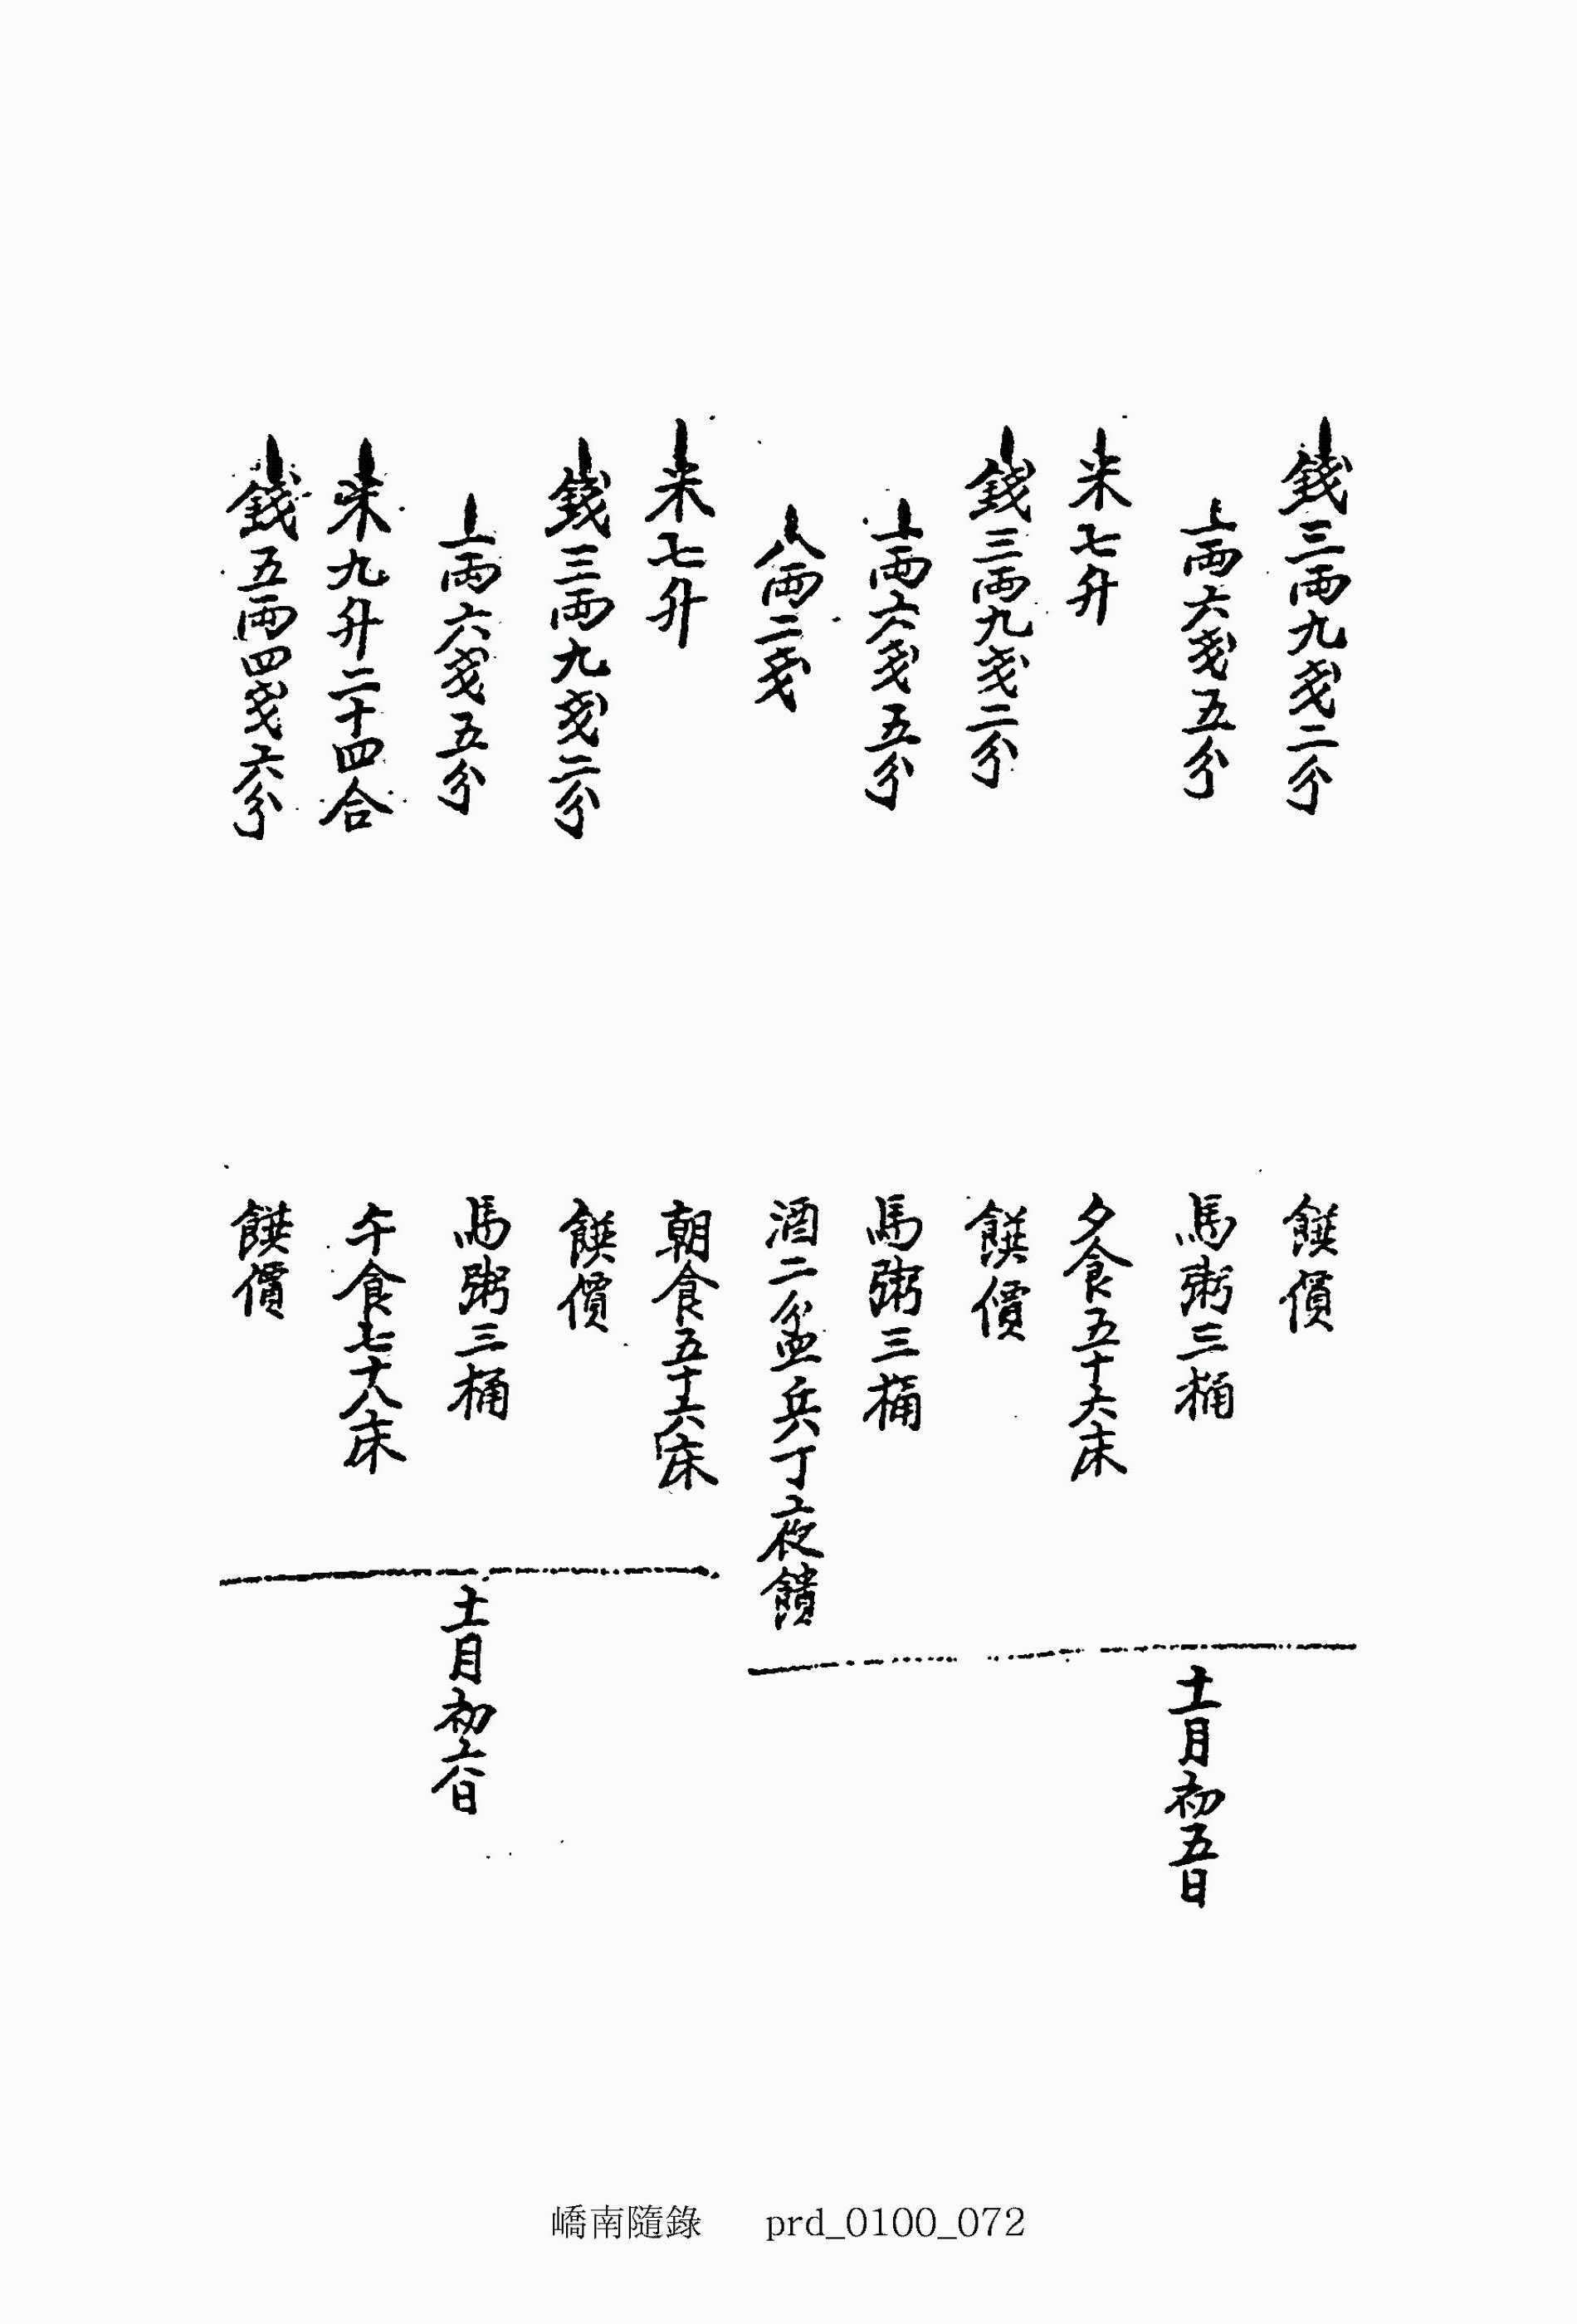 錢三兩九戔二分 饌價
一兩六戔五分 馬粥三桶
米七升 夕食五十六床
錢三兩九戔二分 饌價
一兩六戔五分 馬粥三桶
八兩二戔 酒二盆兵丁夜饋
十一月初五日
米七升 朝食五十六床
錢三兩九戔二分 饌價
一兩六戔五分 馬粥三桶
米九升二十四合 午食七十八床
錢五兩四戔六分 饌價
十一月初六日
嶠南隨錄 prd_0100_072